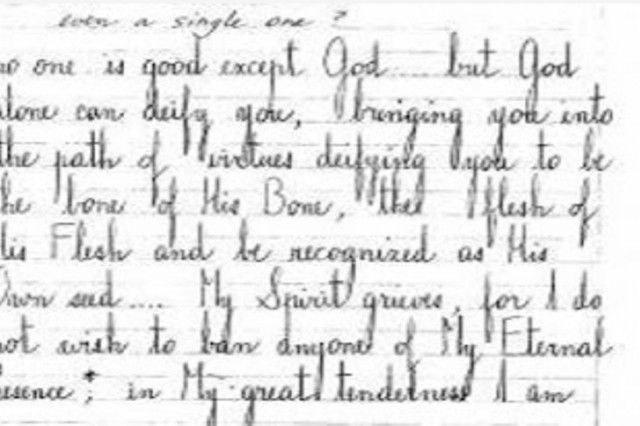 even a single one ?
no one is good except God .... but God
alone can deify you, bringing you into
the path of virtues deifying you to be
the bone of His Bone, the flesh of
His Flesh and be recognized as His
Own seed .... My Spirit grieves, for I do
not wish to ban anyone of My Eternal
esence ; in My great tenderness I am